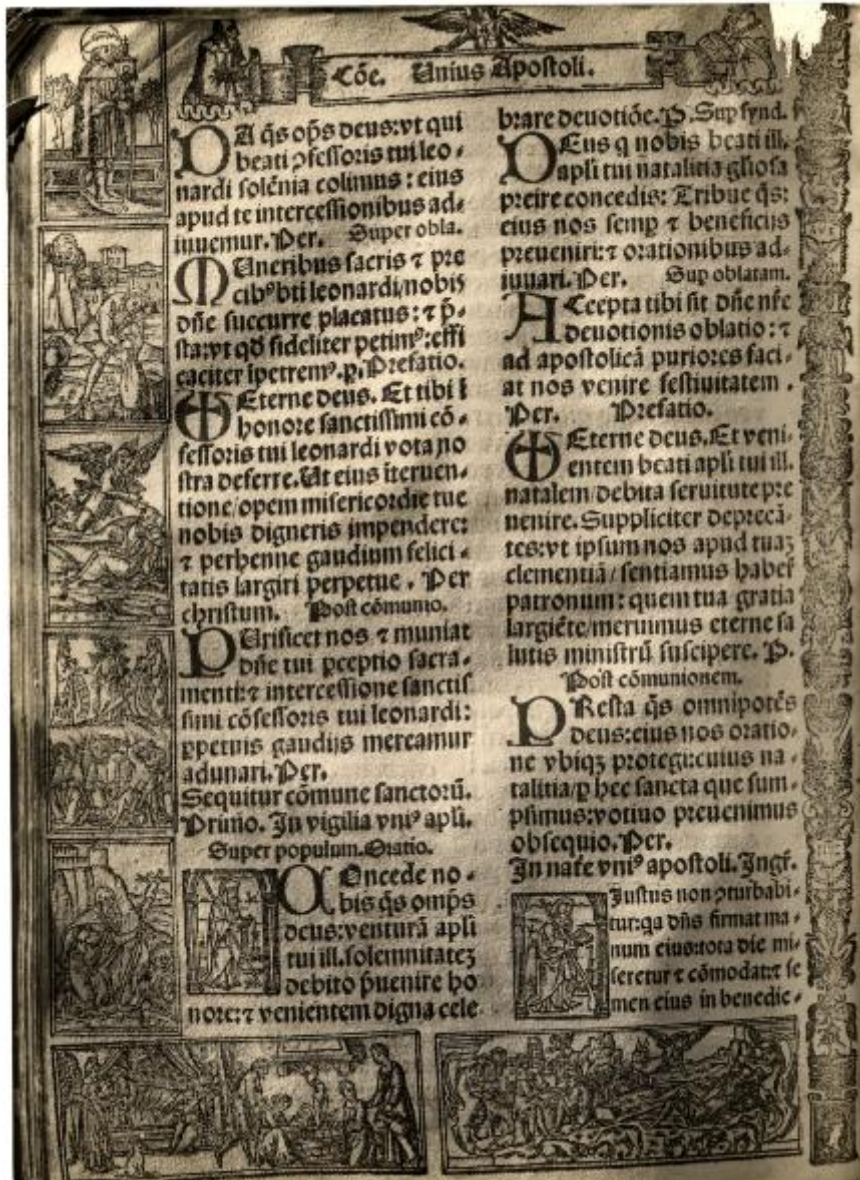 Cõe. Unius Apostoli.
DA q̃s op̃s deus: vt qui
beati ꝯfessoris tui leo-
nardi solẽnia colimus: eius
apud te intercessionibus ad-
iuuemur. Per. Super obla.
MUneribus sacris ⁊ pre
cibꝰ bti leonardi/nobis
dñe succurre placatus: ⁊ p̃-
sta: vt qd̃ fideliter petimꝰ: effi
caciter ĩpetremꝰ. p. Prefatio.
Eterne deus. Et tibi ĩ
honore sanctissimi cõ-
fessoris tui leonardi vota no
stra deferre. Ut eius ĩteruen-
tione/opem misericordie tue
nobis digneris impendere:
⁊ perhenne gaudium felici-
tatis largiri perpetue. Per
christum. Post cõmunio.
PUrificet nos ⁊ muniat
dñe tui ꝑceptio sacra-
menti: ⁊ intercessione sanctis
simi cõfessoris tui leonardi:
ꝑpetuis gaudijs mereamur
adunari. Per.
Sequitur cõmune sanctorũ.
Primo. In vigilia vniꝰ apl̃i.
Super populum. Oratio.
COncede no-
bis q̃s omp̃s
deus: venturã apl̃i
tui ill. solemnitateꝫ
debito p̃uenire ho
nore: ⁊ venientem digna cele
brare deuotiõe. P. Sup synd.
DEus q nobis beati ill.
apl̃i tui natalitia gl̃iosa
preire concedis: Tribue q̃s:
eius nos semꝑ ⁊ beneficijs
preueniri: ⁊ orationibus ad-
iuuari. Per. Sup oblatam.
ACcepta tibi sit dñe nr̃e
deuotionis oblatio: ⁊
ad apostolicã puriores faci-
at nos venire festiuitatem.
Per. Prefatio.
Eterne deus. Et veni-
entem beati apl̃i tui ill.
natalem/debita seruitute pre
uenire. Suppliciter deprecã-
tes: vt ipsum nos apud tuaꝫ
clementiã/sentiamus haber̃
patronum: quem tua gratia
largiẽte/meruimus eterne sa
lutis ministrũ suscipere. P.
Post cõmunionem.
PResta q̃s omnipotẽs
deus: eius nos oratio-
ne vbiqꝫ protegi: cuius na-
talitia/ꝑ hec sancta que sum-
psimus: votiuo preuenimus
obsequio. Per.
In nat̃e vniꝰ apostoli. Ingr̃.
Justus non ꝯturbabi-
tur: qa dñs firmat ma-
num eius: tota die mi-
seretur ⁊ cõmodat: ⁊ se
men eius in benedic-